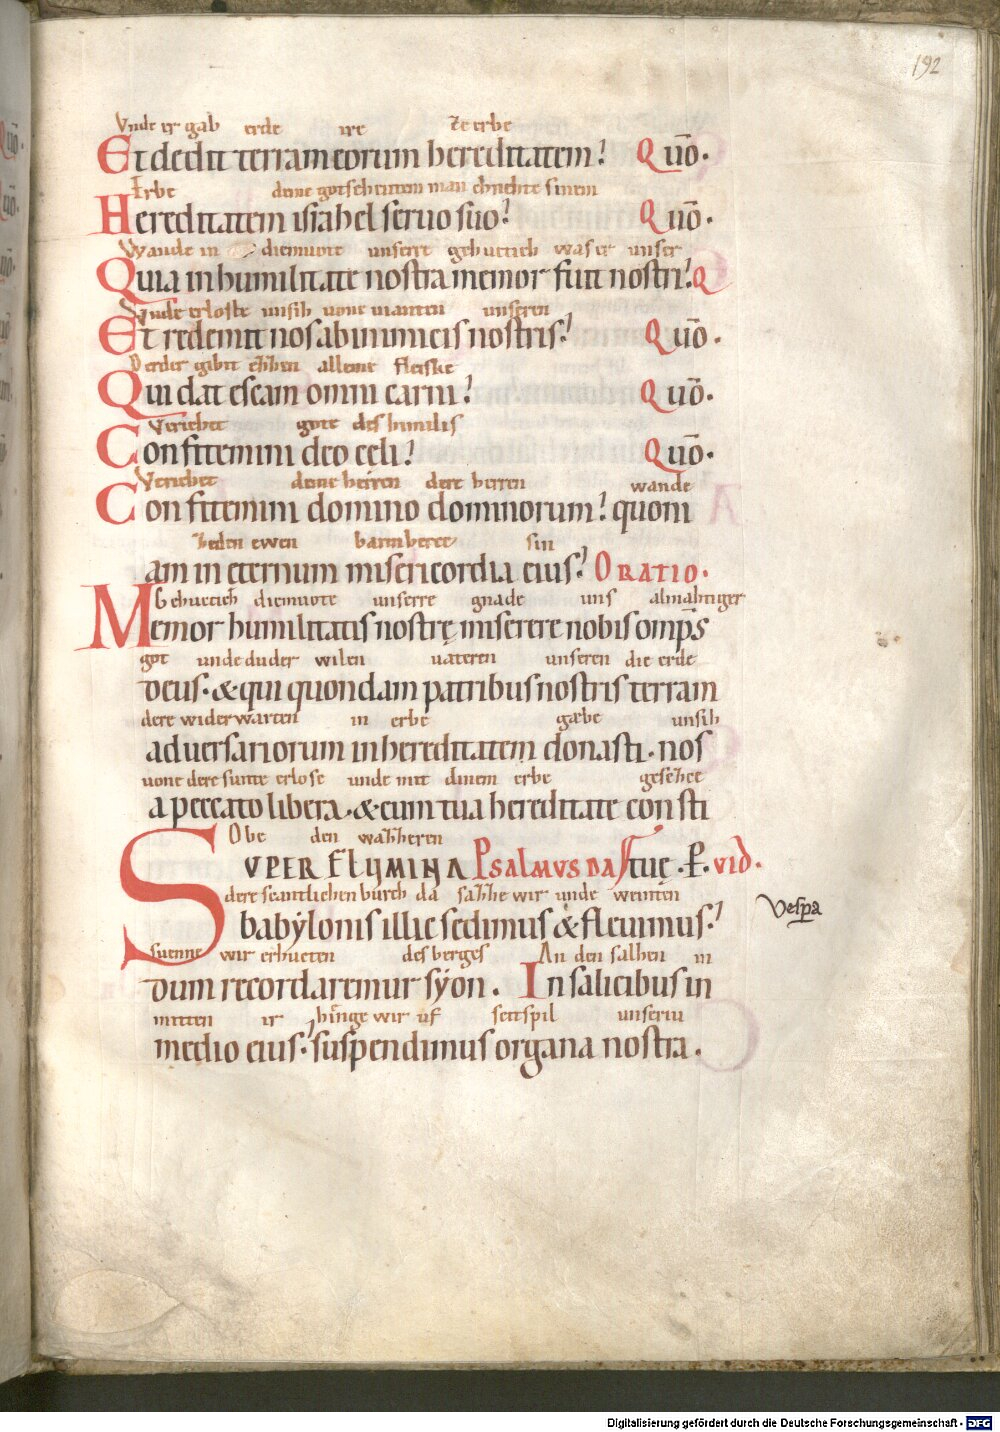 192
Vnde ir gab erde ire ze erbe
Et dedit terram eorum hereditatem? Quō.
Erbe deme gotsehenten man chnehte sinem
Hereditatem isrl̄ahel seruo suo? Quō.
Wande in diemuote unserre gehuctich was er unser
Quia in humilitate nostra memor fuit nostri? Q
Vnde erloste unsih uone uianten unseren
Et redemit nos ab inimicis nostris? Quō.
Der der gibit ezzen alleme fleiske
Qui dat escam omni carni? Quō.
Veriehet gote des himilis
Confitemini deo cęli? Quō.
Veriehet deme herren dere herren wande
Confitemini domino dominorum? quoni
ze den ewen barmherze sin
am in eternum misericordia eius? ORATIO.
Gehuctich diemuote unserre gnade uns almahtiger
Memor humilitatis nostrę miserere nobis omp̄s
got unde du der wilen uateren unseren die erde
deus. & qui quondam patribus nostris terram
dere widerwarten in erbe gæbe unsih
aduersariorum in hereditatem donasti. nos
uone dere sunte erlose unde mit dinem erbe gesezzet
a peccato libera. & cum tua hereditate consti
Obe den wazzeren
SVPER FLVMINA PSALMVS DA tuę. P. uid.
dere scantlichen burch da sazze wir unde weinten
babylonis illic sedimus & fleuimus?
Vesp̄a
suenne wir erhucten des berges An den salhen in
dum recordaremur syon. In salicibus in
mitten ir hinge wir uf seitspil unseriu
medio eius? suspendimus organa nostra.
Digitalisierung gefördert durch die Deutsche Forschungsgemeinschaft - DFG